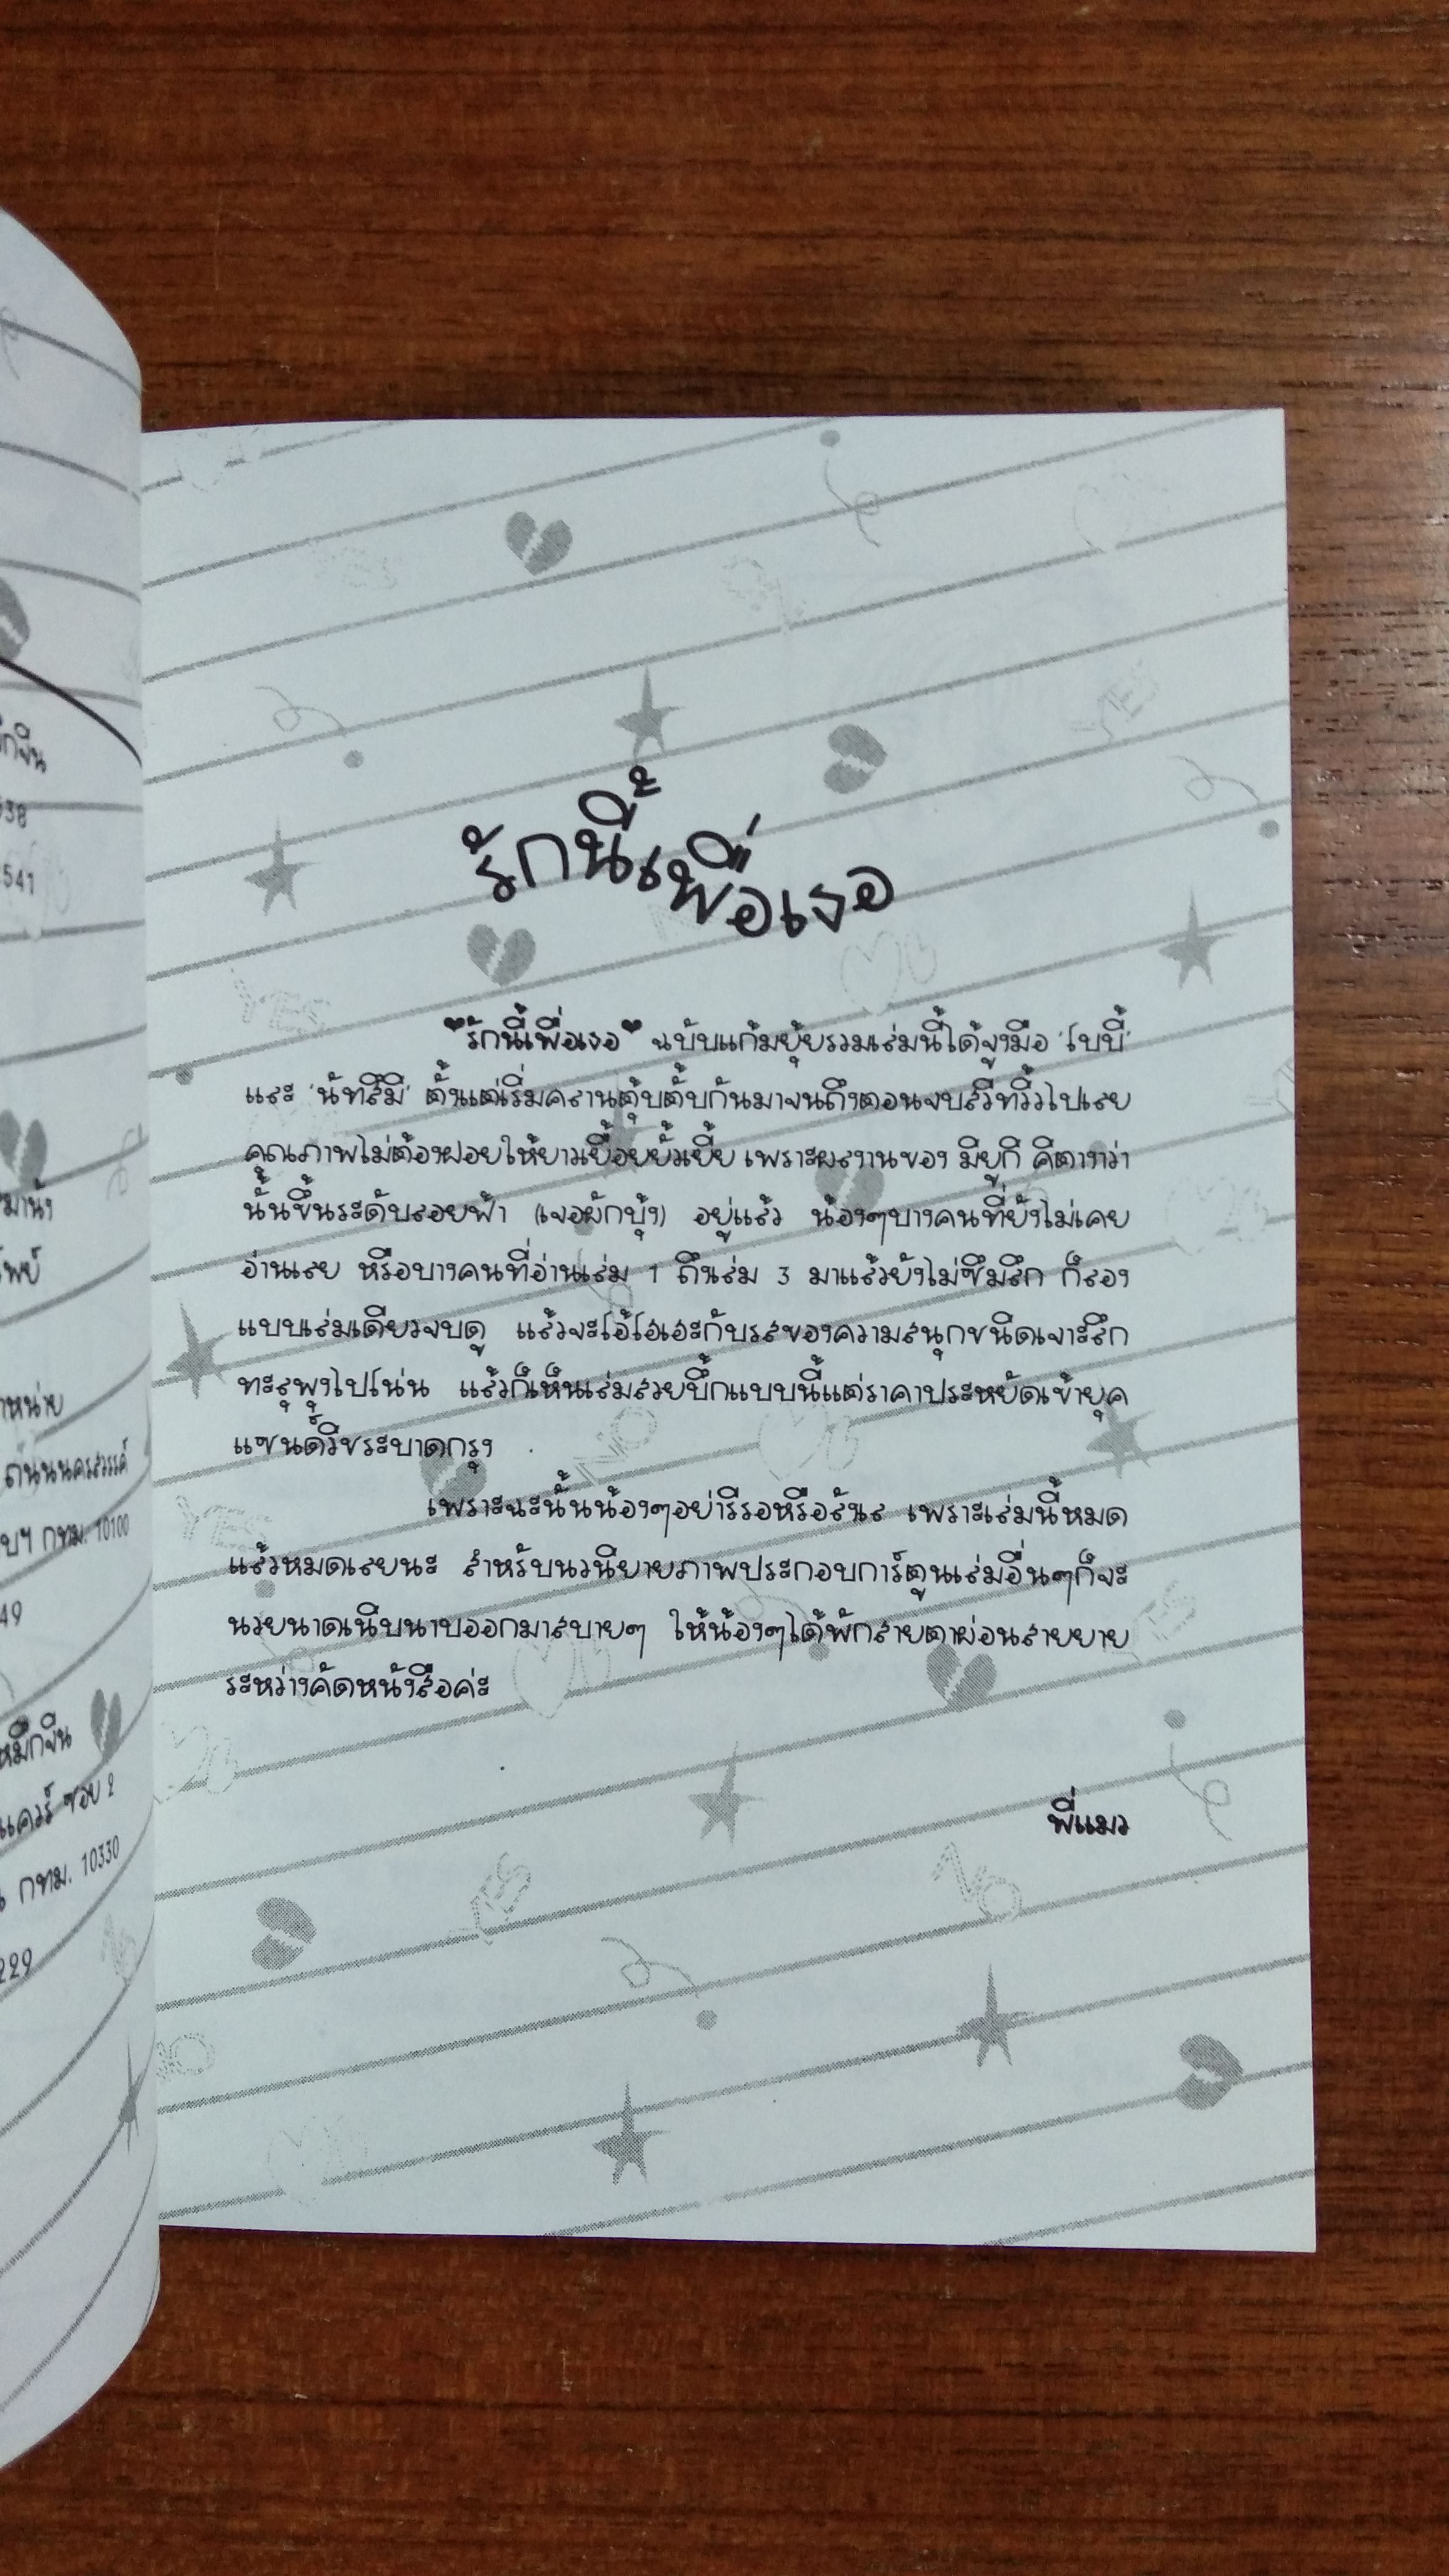 ึกจีน
638
541
มานัง
โพย์
าหน่าย
ถนนนครสวรรค์
บฯ กทม. 10100
49
หมึกจีน
แควร์ ซอย 2
กทม. 10330
229
รักนี้เพื่อเธอ
"รักนี้เพื่อเธอ" ฉบับแก้มยุ้ยรวมเล่มนี้ได้จูงมือ 'โบบี้'
และ 'นัทสึมิ' ตั้งแต่เริ่มคลานตุ้บตั้บกันมาจนถึงตอนจบสวีทวี้วไปเลย
คุณภาพไม่ต้องฝอยให้ยาวเยื้อยยั้วเยี้ย เพราะผลงานของ มิยูกิ คิตางาว่า
นั้นขึ้นระดับลอยฟ้า (เจอผักบุ้ง) อยู่แล้ว น้องๆบางคนที่ยังไม่เคย
อ่านเลย หรือบางคนที่อ่านเล่ม 1 ถึงเล่ม 3 มาแล้วยังไม่ซึมลึก ก็ลอง
แบบเล่มเดียวจบดู แล้วจะโอ้โฮเฮะกับรสของความสนุกชนิดเจาะลึก
ทะลุพุงไปโน่น แล้วก็เห็นเล่มสวยบึ้กแบบนี้แต่ราคาประหยัดเข้ายุค
แซนด์วิชระบาดกรุง
เพราะฉะนั้นน้องๆอย่ารีรอหรือลังเล เพราะเล่มนี้หมด
แล้วหมดเลยนะ สำหรับนวนิยายภาพประกอบการ์ตูนเล่มอื่นๆก็จะ
นวยนาดเนิบนาบออกมาสบายๆ ให้น้องๆได้พักสายตาผ่อนสายยาย
ระหว่างคัดหนังสือค่ะ
พี่แมว